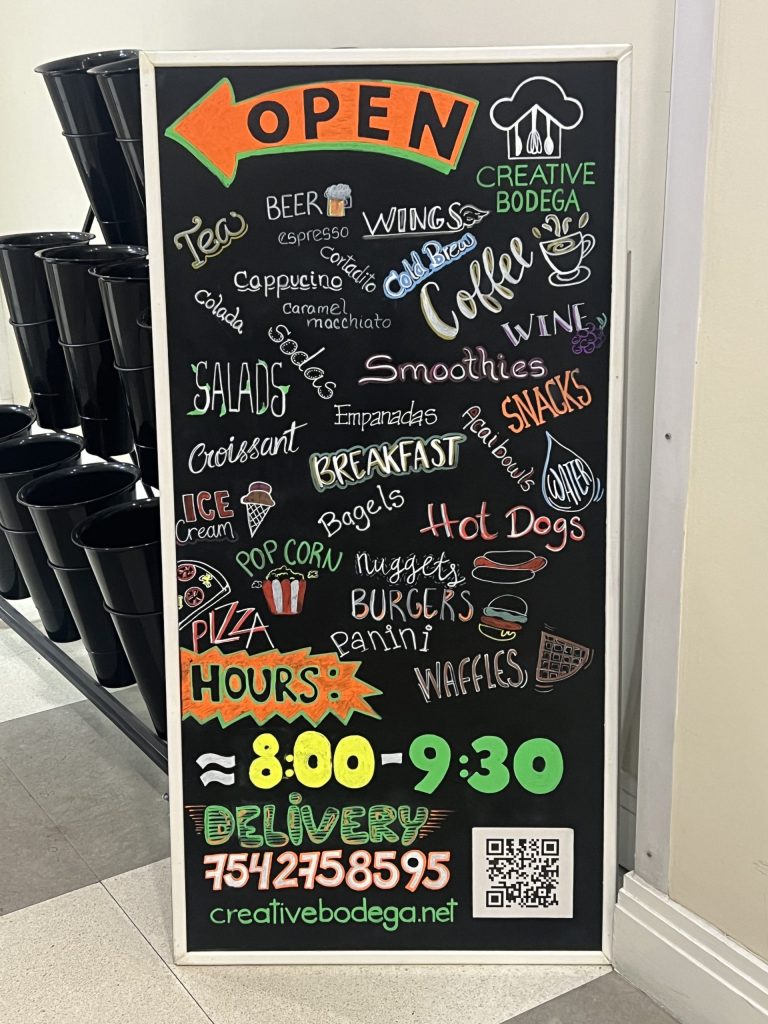 OPEN
CREATIVE
BODEGA
Tea
BEER
WINGS
espresso
Cortadito
Cold Brew
Coffee
Cappucino
Colada
caramel
macchiato
WINE
Sodas
Smoothies
SALADS
SNACKS
Empanadas
Acai bowls
Croissant
BREAKFAST
WATER
ICE
Cream
Bagels
Hot Dogs
POP CORN
nuggets
BURGERS
PIZZA
panini
WAFFLES
HOURS:
≈ 8:00-9:30
DELIVERY
7542758595
creativebodega.net